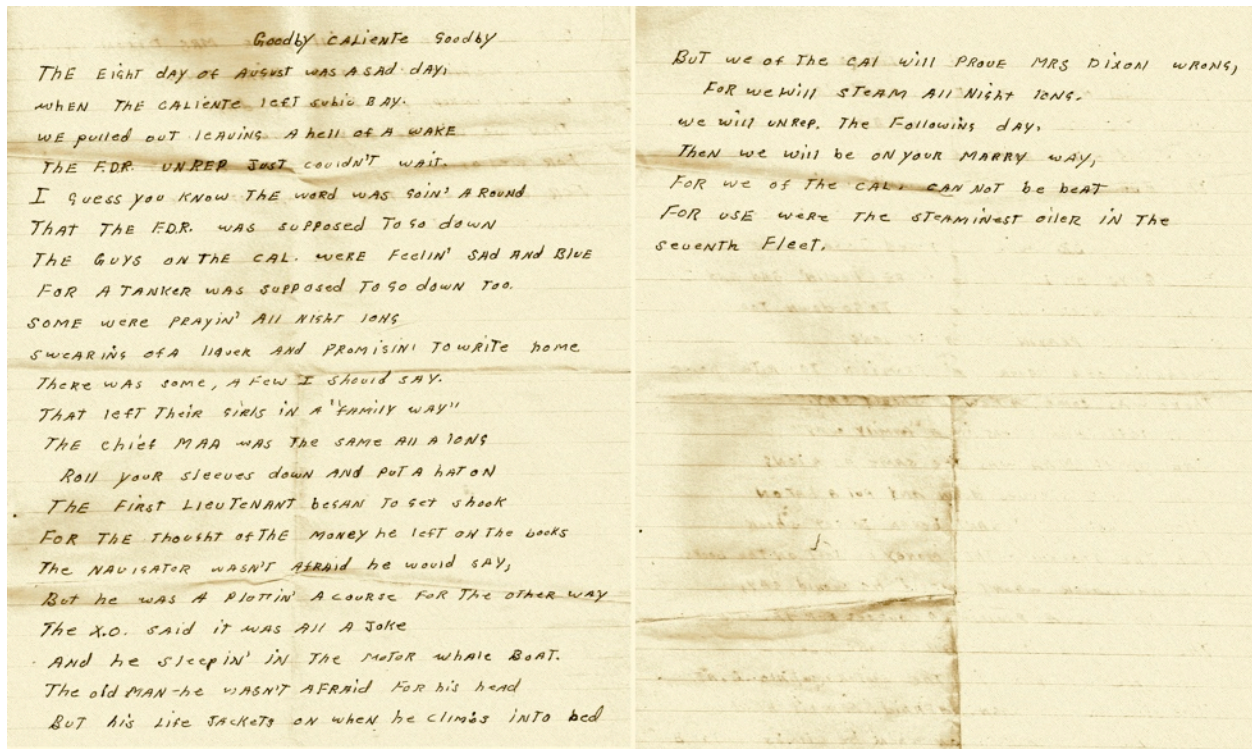 Goodby Caliente Goodby
The Eight day of August was a sad day,
when The Caliente left subic Bay.
we pulled out leaving a hell of a wake
The F.D.R. unrep just couldn't wait.
I guess you know the word was goin' around
That the F.D.R. was supposed to go down
The Guys on the Cal. were feelin' sad and Blue
For a tanker was supposed to go down too.
Some were prayin' all night long
swearing of a liquer and promisin' to write home
There was some, a few I should say.
That left their girls in a "family way"
The chief MAA was the same all along
Roll your sleeves down and put a hat on
The First Lieutenant began to get shook
For the thought of the money he left on the books
The navigator wasn't afraid he would say,
But he was a plottin' a course for the other way
The X.O. said it was all a joke
And he sleepin' in the motor whale boat.
The old man-he wasn't afraid for his head
But his life jackets on when he climbs into bed
But we of the Cal will prove Mrs Dixon wrong,
For we will steam all night long.
we will unrep. the following day,
Then we will be on your marry way,
For we of the Cal. can not be beat
For use were the steaminest oiler in the
seventh Fleet.